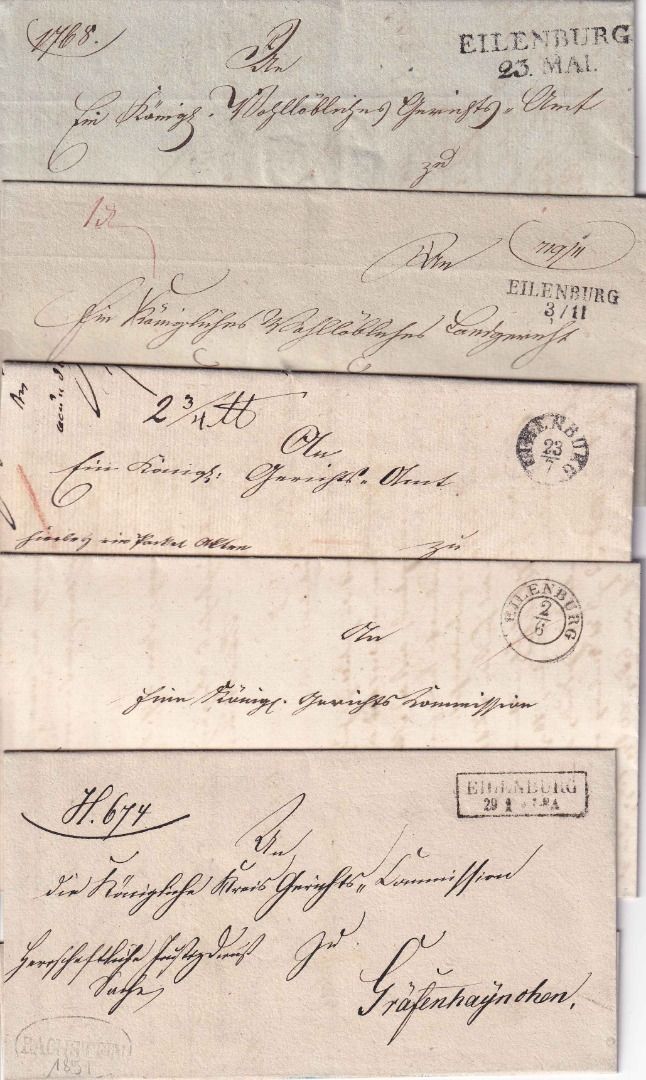 1768.
EILENBURG
23. MAI.
An
Ein Königl. Wohllöbliches Gerichts-Amt
zu
An
EILENBURG
3/11
Ein Königliches Wohllöbliches Landgericht
2 3/4 ℔
EILENBURG
23/7
An
Ein Königl: Gerichts-Amt
hierbey ein Packet Akten
zu
EILENBURG
2/6
An
Eine Königl. Gerichts Commission
H. 674
EILENBURG
29
An
die Königliche Kreis Gerichts-Commission
Herrschaftliche
zu
Sache
Gräfenhaynchen.
1851